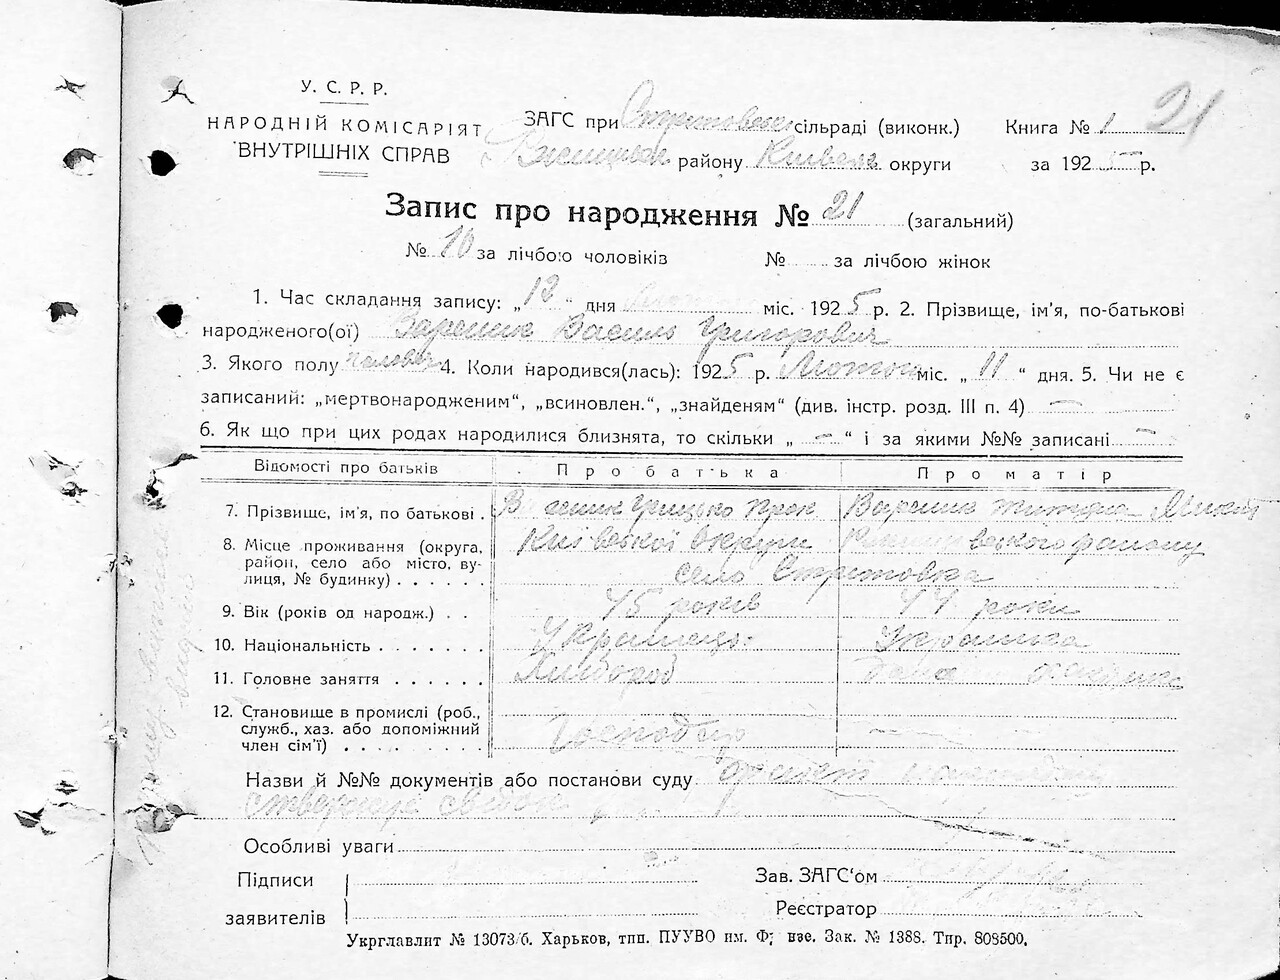 21
У. С. Р. Р.
НАРОДНІЙ КОМІСАРІЯТ
ВНУТРІШНІХ СПРАВ
ЗАГС при сільраді (виконк.) Книга № 1
району округи за 1925 р.
Запис про народження № 21 (загальний)
№ 10 за лічбою чоловіків № за лічбою жінок
1. Час складання запису: „12“ дня міс. 1925 р. 2. Прізвище, ім'я, по-батькові
народженого(ої) Вареник Василь Григорович
3. Якого полу 4. Коли народився(лась): 1925 р. Лютого міс. „11“ дня. 5. Чи не є
записаний: „мертвонародженим“, „всиновлен.“, „знайденям“ (див. інстр. розд. III п. 4) —
6. Як що при цих родах народилися близнята, то скільки „—“ і за якими №№ записані —
Відомості про батьків Про батька Про матір
7. Прізвище, ім'я, по батькові . Вареник Грицько Прок Вареник
8. Місце проживання (округа, район, село або місто, вулиця, № будинку) . . . . . . Київської Округи району
село Стритовка
9. Вік (років од народж.) . . 45 років 44 роки
10. Національність . . . . . . . Українець Українка
11. Головне заняття . . . . . . Хлібороб
12. Становище в промислі (роб.,
служб., хаз. або допоміжний
член сім'ї) . . . . . . . . Господар —
Назви й №№ документів або постанови суду
Особливі уваги
Підписи Зав. ЗАГС'ом
заявителів Реєстратор
Укрглавлит № 13073/б. Харьков, тип. ПУУВО им. Фрунзе. Зак. № 1388. Тир. 808500.